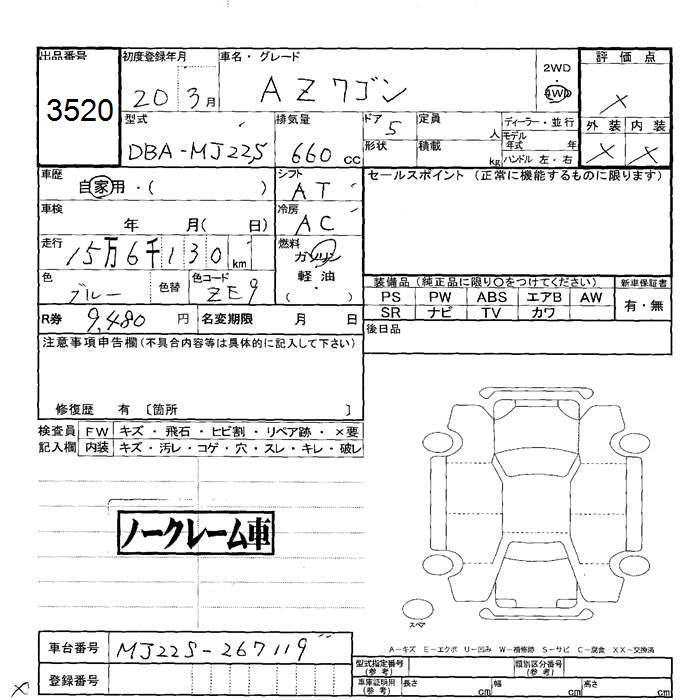 出品番号 初度登録年月 車名・グレード 2WD 評価点
3520 20 3月 AZワゴン 4WD ×
型式 排気量 ドア 定員 ディーラー・並行 外装 内装
DBA-MJ22S 660cc 5 人 モデル年式 年 × ×
形状 積載 kg ハンドル 左・右
車歴 自家用・( ) シフト AT セールスポイント (正常に機能するものに限ります)
車検 年 月( 日) 冷房 AC
走行 15万6千130km 燃料 ガソリン
軽油
・( )
色 ブルー 色替 色コード ZE9
装備品 (純正品に限り○をつけてください) 新車保証書
PS PW ABS エアB AW 有・無
SR ナビ TV カワ
R券 9,480円 名変期限 月 日 後日品
注意事項申告欄(不具合内容等は具体的に記入して下さい)
修復歴 有 〔箇所 〕
検査員 FW キズ・飛石・ヒビ割・リペア跡・×要
記入欄 内装 キズ・汚レ・コゲ・穴・スレ・キレ・破レ
ノークレーム車
スペア
A-キズ E-エクボ U-凹み W-補修跡 S-サビ C-腐食 XX-交換済
車台番号 MJ22S-267119
登録番号
型式指定番号(参考) 類別区分番号(参考)
車庫証明用(参考) 長さ cm 幅 cm 高さ cm
×